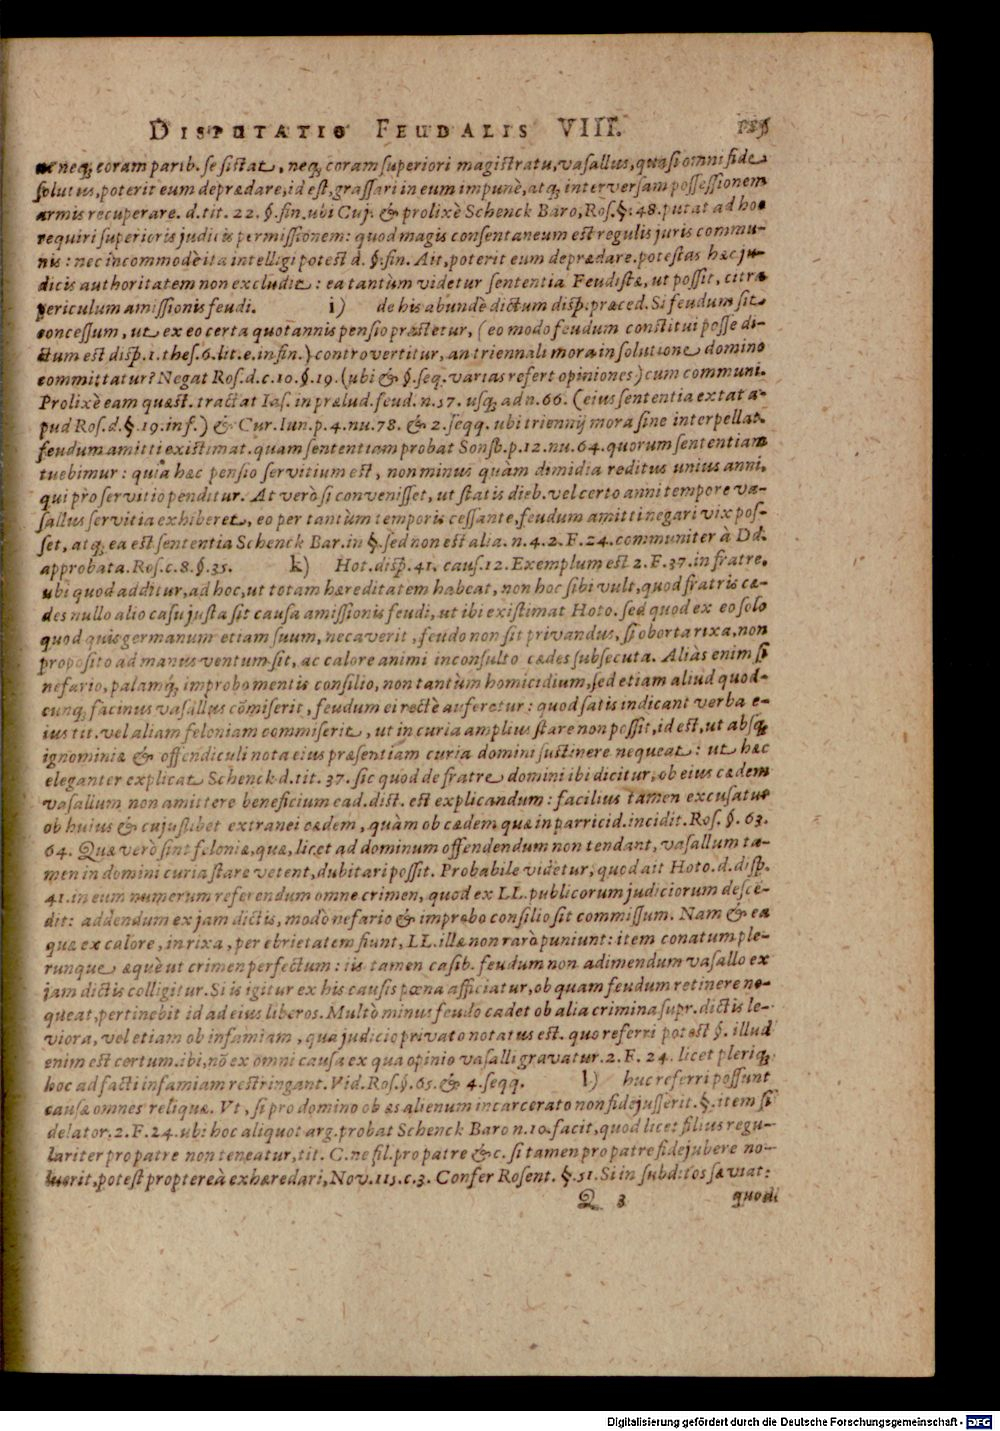 DISPUTATIO FEUDALIS VIII.
neq; coram parib. se sistat, neq; coram superiori magistratu, vasallus, quasi omni fide
solutus, poterit eum deprædare, id est, grassari in eum impunè, atq; interversam possessionem
armis recuperare. d. tit. 22. §. fin. ubi Cuj. & prolixè Schenck Baro, Ros. §. 48. putat ad hoc
requiri superioris judicis permissionem: quod magis consentaneum est regulis juris commu-
nis: nec incommodè ita intelligi potest d. §. fin. Ait, poterit eum deprædare. potestas hæc ju-
dicis authoritatem non excludit: ea tantùm videtur sententia Feudistæ, ut possit, citra
periculum amissionis feudi. i) de his abundè dictum disp. præced. Si feudum sit
concessum, ut ex eo certa quotannis pensio præstetur, (eo modo feudum constitui posse di-
ctum est disp. 1. thes. 6. lit. e. in fin.) controvertitur, an triennali mora in solutione domino
committatur? Negat Ros. d. c. 10. §. 19. (ubi & §. seq. varias refert opiniones) cum communi.
Prolixè eam quæst. tractat Ias. in prælud. feud. n. 57. usq; ad n. 66. (eius sententia extat a-
pud Ros. d. §. 19. inf.) & Cur. Iun. p. 4. nu. 78. & 2. seqq. ubi triennij mora sine interpellat.
feudum amitti existimat. quam sententiam probat Sonsb. p. 12. nu. 64. quorum sententiam
tuebimur: quia hæc pensio servitium est, non minus quàm dimidia reditus unius anni,
qui pro servitio penditur. At verò si convenisset, ut statis dieb. vel certo anni tempore va-
sallus servitia exhiberet, eo per tantùm temporis cessante, feudum amitti negari vix pos-
set, atq; ea est sententia Schenck Bar. in §. sed non est alia. n. 4. 2. F. 24. communiter à Dd.
approbata. Ros. c. 8. §. 35. k) Hot. disp. 41. caus. 12. Exemplum est 2. F. 37. in fratre,
ubi quod additur, ad hoc, ut totam hæreditatem habeat, non hoc sibi vult, quod fratris cæ-
des nullo alio casu justa sit causa amissionis feudi, ut ibi existimat Hoto. sed quod ex eo solo
quod quis germanum etiam suum, necaverit, feudo non sit privandus, si oborta rixa, non
proposito ad manus ventum sit, ac calore animi inconsulto cædes subsecuta. Aliàs enim si
nefario, palamq; improbo mentis consilio, non tantùm homicidium, sed etiam aliud quod-
cunq; facinus vasallus cõmiserit, feudum ei rectè auferetur: quod satis indicant verba e-
ius tit. vel aliam feloniam commiserit, ut in curia amplius stare non possit, id est, ut absq;
ignominiæ & offendiculi nota eius præsentiam curia domini sustinere nequeat: ut hæc
eleganter explicat Schenck d. tit. 37. sic quod de fratre domini ibi dicitur, ob eius cædem
vasallum non amittere beneficium ead. dist. est explicandum: facilius tamen excusatur
ob huius & cujuslibet extranei cædem, quàm ob cædem quæ in parricid. incidit. Ros. §. 63.
64. Quæ verò sint feloniæ, quæ, licet ad dominum offendendum non tendant, vasallum ta-
men in domini curia stare vetent, dubitari possit. Probabile videtur, quod ait Hoto. d. disp.
41. in eum numerum referendum omne crimen, quod ex LL. publicorum judiciorum descẽ-
dit: addendum ex jam dictis, modò nefario & improbo consilio sit commissum. Nam & ea
quæ ex calore, in rixa, per ebrietatem fiunt, LL. illæ non rarò puniunt: item conatum ple-
runque æquè ut crimen perfectum: iis tamen casib. feudum non adimendum vasallo ex
jam dictis colligitur. Si is igitur ex his causis pœna afficiatur, ob quam feudum retinere ne-
queat, pertinebit id ad eius liberos. Multò minus feudo cadet ob alia crimina supr. dictis le-
viora, vel etiam ob infamiam, qua judicio privato notatus est. quo referri potest §. illud
enim est certum. ibi, nõ ex omni causa ex qua opinio vasalli gravatur. 2. F. 24. licet pleriq;
hoc ad facti infamiam restringant. Vid. Ros. §. 65. & 4. seqq. l) huc referri possunt
causæ omnes reliquæ. Vt, si pro domino ob æs alienum incarcerato non fidejusserit. §. item si
delator. 2. F. 24. ubi hoc aliquot arg. probat Schenck Baro n. 10. facit, quod licet filius regu-
lariter pro patre non teneatur, tit. C. ne fil. pro patre &c. si tamen pro patre fidejubere no-
luerit, potest propterea exhæredari, Nov. 115. c. 3. Confer Rosent. §. 51. Si in subditos sæviat:
Q 3 quodi
Digitalisierung gefördert durch die Deutsche Forschungsgemeinschaft - DFG